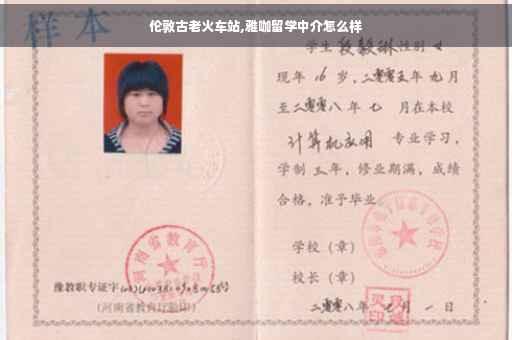 伦敦古老火车站,雅咖留学中介怎么样
样本
学生 段毅琳 性别 女
现年 16 岁,二零零五年 九 月
至二零零八年 七 月在本校
计算机应用 专业学习,
学制 三 年,修业期满,成绩
合格,准予毕业
学校(章)
校长(章)
二零零八年 七 月 一 日
河南省教育厅
豫教职专证字
(河南省教育厅监印)